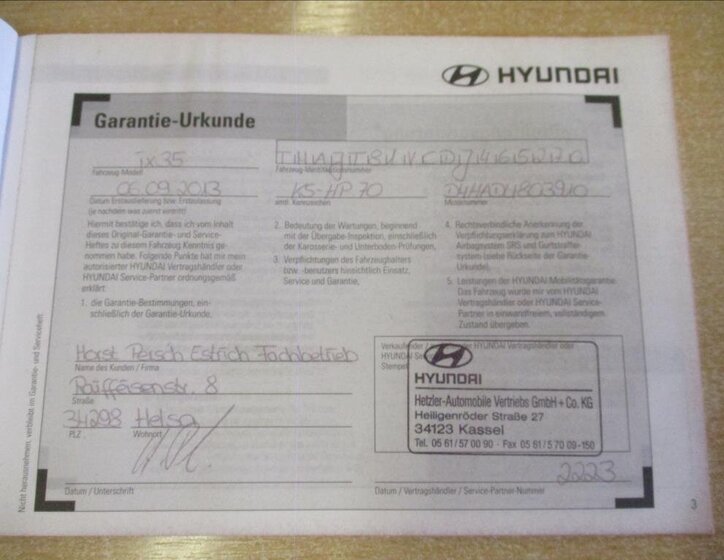 HYUNDAI
Garantie-Urkunde
ix35
Fahrzeug-Modell
Fahrzeug-Identifikationsnummer
06.09.2013
KS-HP 70
Datum Erstauslieferung bzw. Erstzulassung
(je nachdem was zuerst eintritt)
amtl. Kennzeichen
Motornummer
Hiermit bestätige ich, dass ich vom Inhalt
dieses Original-Garantie- und Service-
Heftes zu diesem Fahrzeug Kenntnis ge-
nommen habe. Folgende Punkte hat mir mein
autorisierter HYUNDAI Vertragshändler oder
HYUNDAI Service-Partner ordnungsgemäß
erklärt:
1. die Garantie-Bestimmungen, ein-
schließlich der Garantie-Urkunde,
2. Bedeutung der Wartungen, beginnend
mit der Übergabe-Inspektion, einschließlich
der Karosserie- und Unterboden-Prüfungen,
3. Verpflichtungen des Fahrzeughalters
bzw. -benutzers hinsichtlich Einsatz,
Service und Garantie,
4. Rechtsverbindliche Anerkennung der
Verpflichtungserklärung zum HYUNDAI
Airbagsystem SRS und Gurtstraffer-
system (siehe Rückseite der Garantie-
Urkunde).
5. Leistungen der HYUNDAI Mobilitätsgarantie.
Das Fahrzeug wurde mir vom HYUNDAI
Vertragshändler oder HYUNDAI Service-
Partner in einwandfreiem, vollständigem
Zustand übergeben.
Horst Persch Estrich Fachbetrieb
Name des Kunden / Firma
Raiffeisenstr. 8
Straße
34298 Helsa
PLZ Wohnort
Datum / Unterschrift
HYUNDAI Vertragshändler oder
HYUNDAI
Stempel
HYUNDAI
Hetzler-Automobile Vertriebs GmbH + Co. KG
Heiligenröder Straße 27
34123 Kassel
Tel. 05 61/57 00 90 - Fax 05 61/5 70 09-150
2223
Datum / Vertragshändler / Service-Partner-Nummer
Nicht herausnehmen, verbleibt im Garantie- und Serviceheft.
3